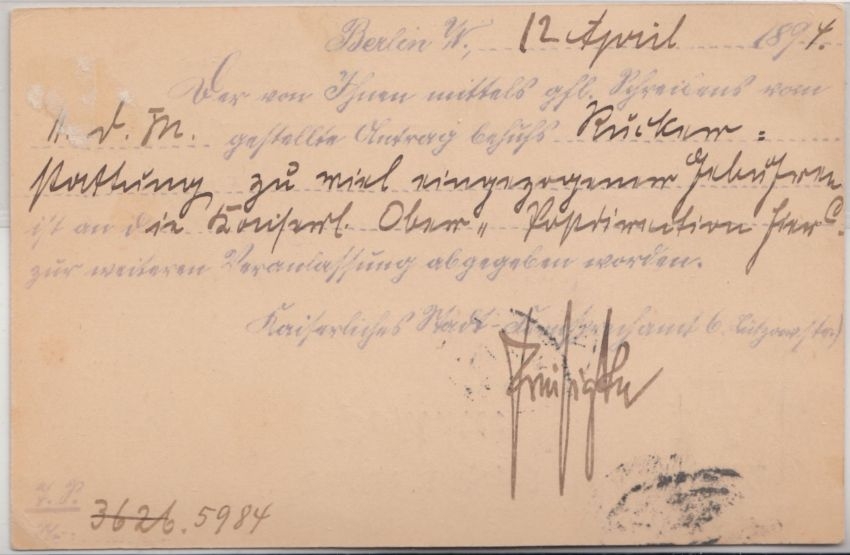 Berlin W., 12 April 1894.
Der von Ihnen mittels gfl. Schreibens vom
11. d. M. gestellte Antrag behufs Rücker=
stattung zu viel eingezogener Gebühren
ist an die Kaiserl. Ober= Postdirection hier
zur weiteren Veranlassung abgegeben worden.
Kaiserliches Stadt-Fernsprechamt 6 (Lützowstr.)
3626. 5984